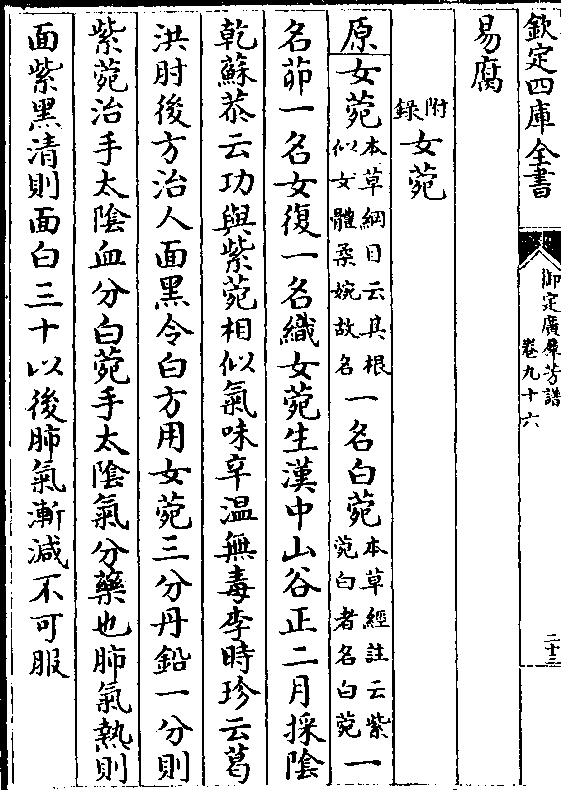 欽定四庫全書
御定廣羣芳譜
卷九十六
二十三
易腐
附錄女菀
原女菀本草綱目云其根似女體柔婉故名一名白菀本草經註云紫菀白者名白菀一
名茆一名女復一名織女菀生漢中山谷正二月採陰
乾蘇恭云功與紫菀相似氣味辛温無毒李時珍云葛
洪肘後方治人面黑令白方用女菀三分丹鉛一分則
紫菀治手太陰血分白菀手太陰氣分藥也肺氣熱則
面紫黑清則面白三十以後肺氣漸減不可服